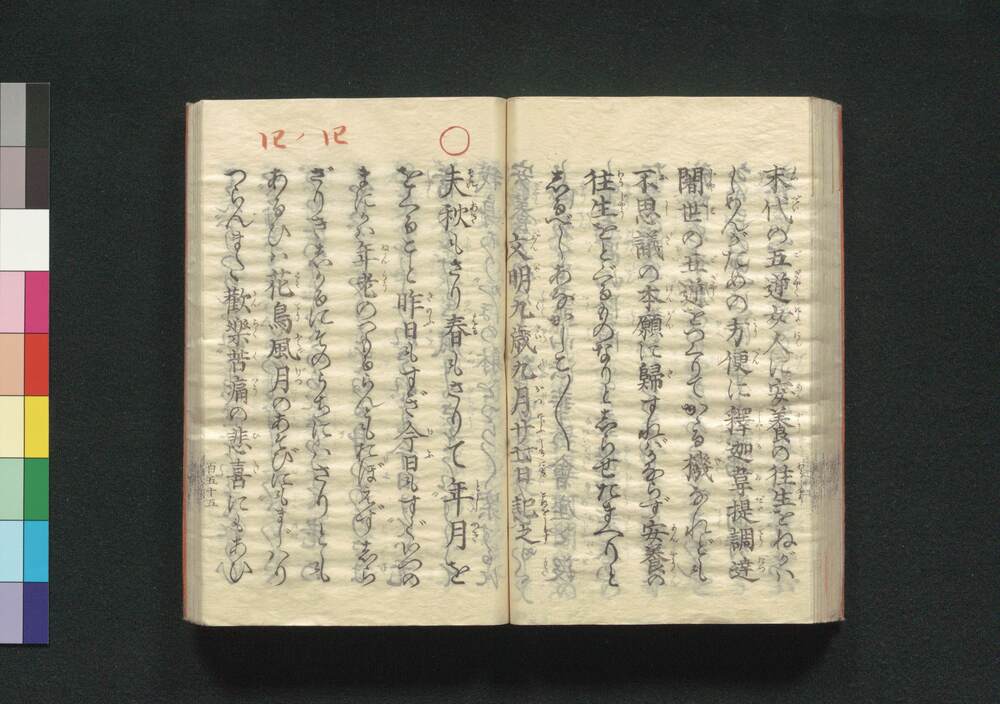 末代の五逆女人に安養の往生をねがは
しめんがための方便に釋迦韋提調達
闍世の五逆をつくりてかゝる機なれども
不思議の本願に歸すればかならず安養の
往生をとぐるものなりとしらせたまへりと
しるべしあなかしこ〳〵
文明九歳九月廿七日記之
○
夫秋もさり春もさりて年月を
をくること昨日もすぎ今日もすぐいつの
まにかは年老のつもるらんともおぼえずしら
ざりきしかるにそのうちにはさりとも
あるひは花鳥風月のあそびにもまじはり
つらんまた歡樂苦痛の悲喜にもあひ
百五十五